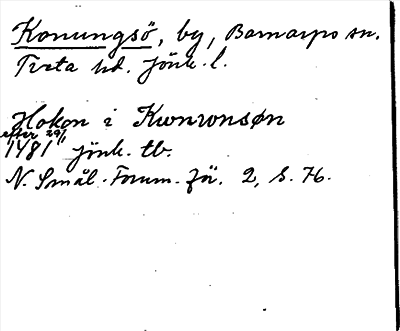 Konungsö, by, Barnarps sn.
Tveta hd. Jönk. l.
Hokon i Kwnwnsøn
efter 29/1
1481 Jönk. tb.
N. Smål. Fornm. för. 2, s. 76.